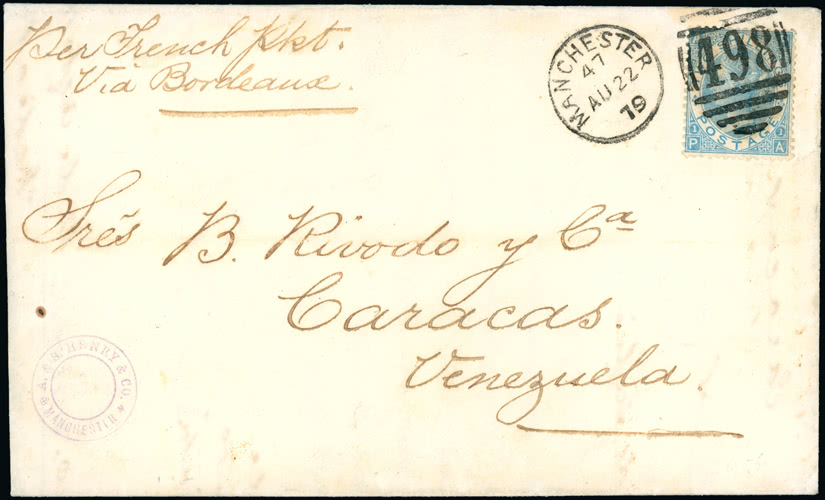 Per French Pkt.
Via Bordeaux.
MANCHESTER
47
AU 22
79
498
POSTAGE
1 1
P A
Srés B. Rivodo y Cª
Caracas.
Venezuela.
A. & S. HENRY & CO.
MANCHESTER